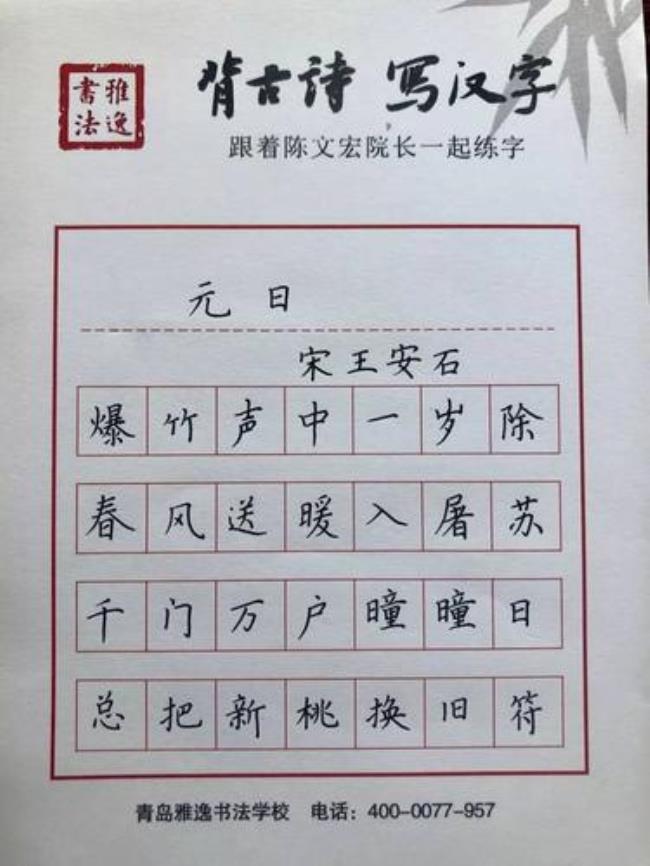 雅逸书法
背古詩 写汉字
跟着陈文宏院长一起练字
元日
宋 王安石
爆竹声中一岁除
春风送暖入屠苏
千门万户曈曈日
总把新桃换旧符
青岛雅逸书法学校 电话：400-0077-957